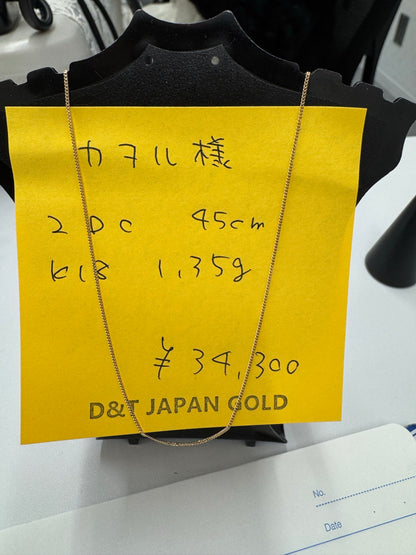 カヲル様
2DC 45cm
K18 1.35g
¥34,300
D&T JAPAN GOLD
No.
Date